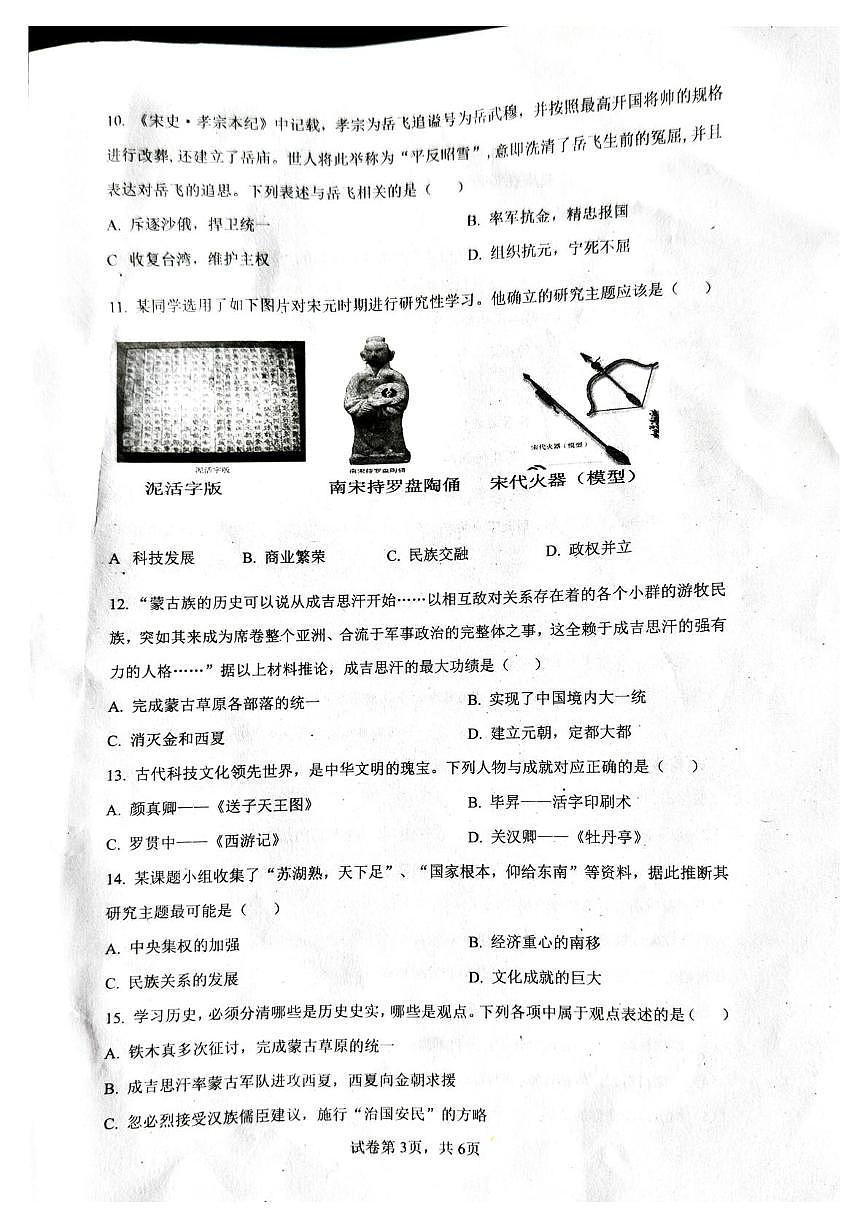 10. 《宋史·孝宗本纪》中记载，孝宗为岳飞追谥号为岳武穆，并按照最高开国将帅的规格
进行改葬，还建立了岳庙。世人将此举称为“平反昭雪”，意即洗清了岳飞生前的冤屈，并且
表达对岳飞的追思。下列表述与岳飞相关的是（ ）
A. 斥逐沙俄，捍卫统一 B. 率军抗金，精忠报国
C 收复台湾，维护主权 D. 组织抗元，宁死不屈
11. 某同学选用了如下图片对宋元时期进行研究性学习。他确立的研究主题应该是（ ）
宋代火器（模型）
泥活字版 南宋持罗盘陶俑
泥活字版 南宋持罗盘陶俑 宋代火器（模型）
A 科技发展 B. 商业繁荣 C. 民族交融 D. 政权并立
12. “蒙古族的历史可以说从成吉思汗开始……以相互敌对关系存在着的各个小群的游牧民
族，突如其来成为席卷整个亚洲、合流于军事政治的完整体之事，这全赖于成吉思汗的强有
力的人格……”据以上材料推论，成吉思汗的最大功绩是（ ）
A. 完成蒙古草原各部落的统一 B. 实现了中国境内大一统
C. 消灭金和西夏 D. 建立元朝，定都大都
13. 古代科技文化领先世界，是中华文明的瑰宝。下列人物与成就对应正确的是（ ）
A. 颜真卿——《送子天王图》 B. 毕昇——活字印刷术
C. 罗贯中——《西游记》 D. 关汉卿——《牡丹亭》
14. 某课题小组收集了“苏湖熟，天下足”、“国家根本，仰给东南”等资料，据此推断其
研究主题最可能是（ ）
A. 中央集权的加强 B. 经济重心的南移
C. 民族关系的发展 D. 文化成就的巨大
15. 学习历史，必须分清哪些是历史史实，哪些是观点。下列各项中属于观点表述的是（ ）
A. 铁木真多次征讨，完成蒙古草原的统一
B. 成吉思汗率蒙古军队进攻西夏，西夏向金朝求援
C. 忽必烈接受汉族儒臣建议，施行“治国安民”的方略
试卷第3页，共6页